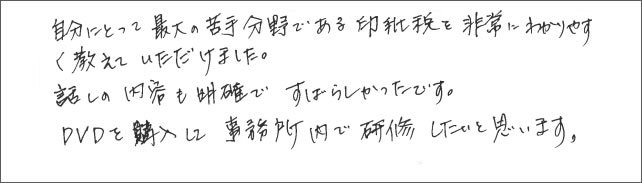 自分にとって最大の苦手分野である印紙税を非常にわかりやす
く教えていただけました。
話しの内容も明確ですばらしかったです。
DVDを購入して事務所内で研修したいと思います。